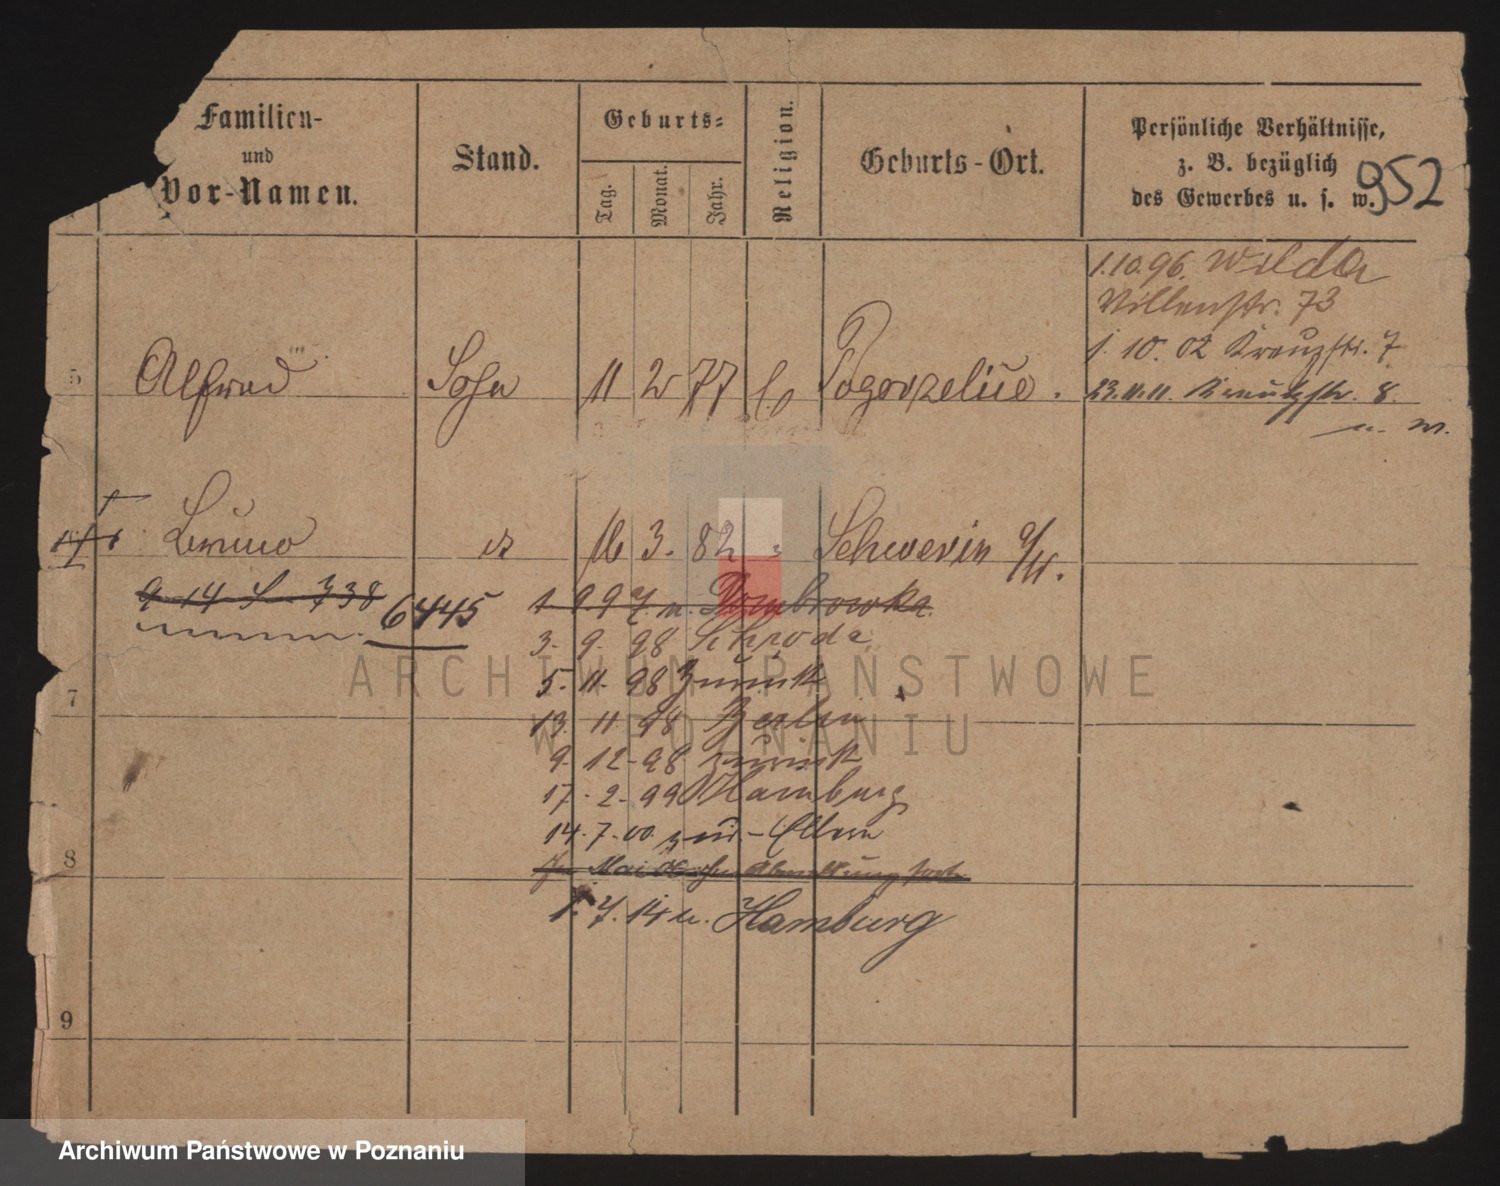 Familien-
und
Vor-Namen.
Stand.
Geburts-
Tag.
Monat.
Jahr.
Religion.
Geburts-Ort.
Persönliche Verhältnisse,
z. B. bezüglich
des Gewerbes u. s. w.
952
1.10.96. Wilda
Villenstr. 73
1. 10. 02 Kreuzstr. 7
5 Alfred Sohn 11 2 77 Pogorzelice.
23.11.11. Kreuzstr. 8.
u. w.
Bruno 3. 82 Schwerin a/W.
9 14 738
6445
1. 9. 97. n. Dombrowka
3. 9. 98 Schroda
5. 11. 98 Zurück
7
13. 11 98 Berlin
9. 12. 98 zurück
17. 2. 99 Hamburg
14. 7. 00. zu Eltern
8
1. 7. 14 n. Hamburg
9
ARCHIWUM PAŃSTWOWE
W POZNANIU
Archiwum Państwowe w Poznaniu